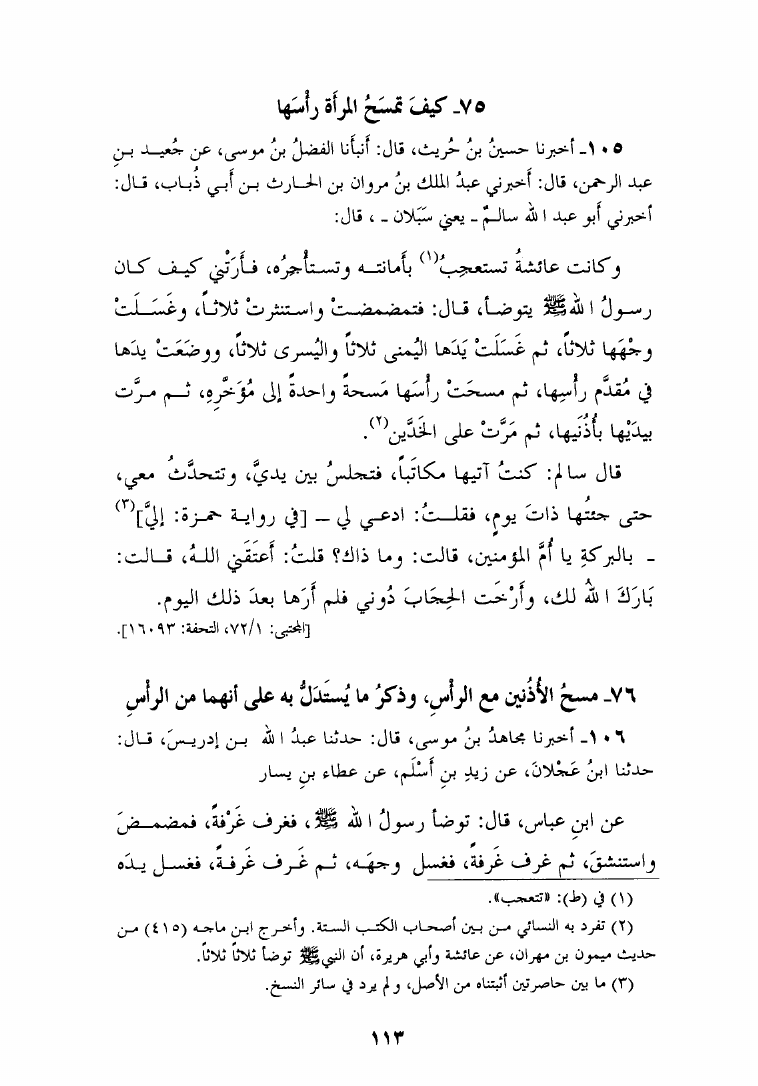 ٧٥ـ كيفَ تمسَحُ المرأَة رأْسَها
١٠٥ـ أخبرنا حسينُ بنُ حُريث، قال: أَنبأَنا الفضلُ بنُ موسى، عن جُعيـد بـنِ
عبد الرحمن، قال: أَخبرني عبدُ الملك بنُ مروان بن الحـارث بـن أَبـي ذُبـاب، قـال:
أخبرني أَبو عبد الله سالـمٌ ـ يعني سَبَلان ـ ، قال:
وكانت عائشةُ تستعجِبُ(١) بأَمانتـه وتسـتأْجِرُه، فـأَرَتْني كيـف كـان
رسـولُ الله ﷺ يتوضـأ، قـال: فتمضمضـتْ واسـتنثرتْ ثلاثـاً، وغَسَـلَتْ
وجْهَها ثلاثاً، ثم غَسَلَتْ يَدَها اليُمنى ثلاثاً واليُسرى ثلاثاً، ووضَعَتْ يدَها
في مُقدَّم رأْسِها، ثم مسحَتْ رأْسَها مَسحةً واحدةً إلى مُؤَخَّرِهِ، ثـم مـرَّت
بيدَيْها بأُذُنَيها، ثم مَرَّتْ على الخَدَّين(٢).
قال سالم: كنتُ آتيها مكاتَباً، فتجلسُ بين يديَّ، وتتحدَّثُ معي،
حتى جئتُها ذاتَ يومٍ، فقلـتُ: ادعـي لي ـ [في روايـة حمـزة: إليَّ](٣)
ـ بالبركةِ يا أُمَّ المؤمنين، قالت: وما ذاك؟ قلتُ: أَعتَقَني اللهُ، قـالت:
بَارَكَ اللهُ لك، وأَرْخَت الحِجَابَ دُوني فلم أَرَها بعدَ ذلك اليوم.
[المجتبى: ٧٢/١، التحفة: ١٦٠٩٣].
٧٦ـ مسحُ الأُذُنين مع الرأْسِ، وذكرُ ما يُستَدَلُّ به على أنهما من الرأْسِ
١٠٦ـ أخبرنا مجاهدُ بنُ موسى، قال: حدثنا عبدُ الله بـن إدريـسَ، قـال:
حدثنا ابنُ عَجْلانَ، عن زيدِ بنِ أَسْلَم، عن عطاء بنِ يسار
عن ابنِ عباس، قال: توضأ رسولُ الله ﷺ، فغرف غَرْفةً، فمضمـضَ
واستنشقَ، ثم غرف غَرفةً، فغسل وجهَـه، ثـم غَـرف غَرفـةً، فغسـل يـدَه
(١) في (ط): «تتعجب».
(٢) تفرد به النسائي مـن بـين أصحـاب الكتـب الستـة. وأخـرج ابـن ماجـه (٤١٥) مـن
حديث ميمون بن مهران، عن عائشة وأبي هريرة، أن النبي ﷺ توضأ ثلاثاً ثلاثاً.
(٣) ما بين حاصرتين أثبتناه من الأصل، ولم يرد في سائر النسخ.
١١٣